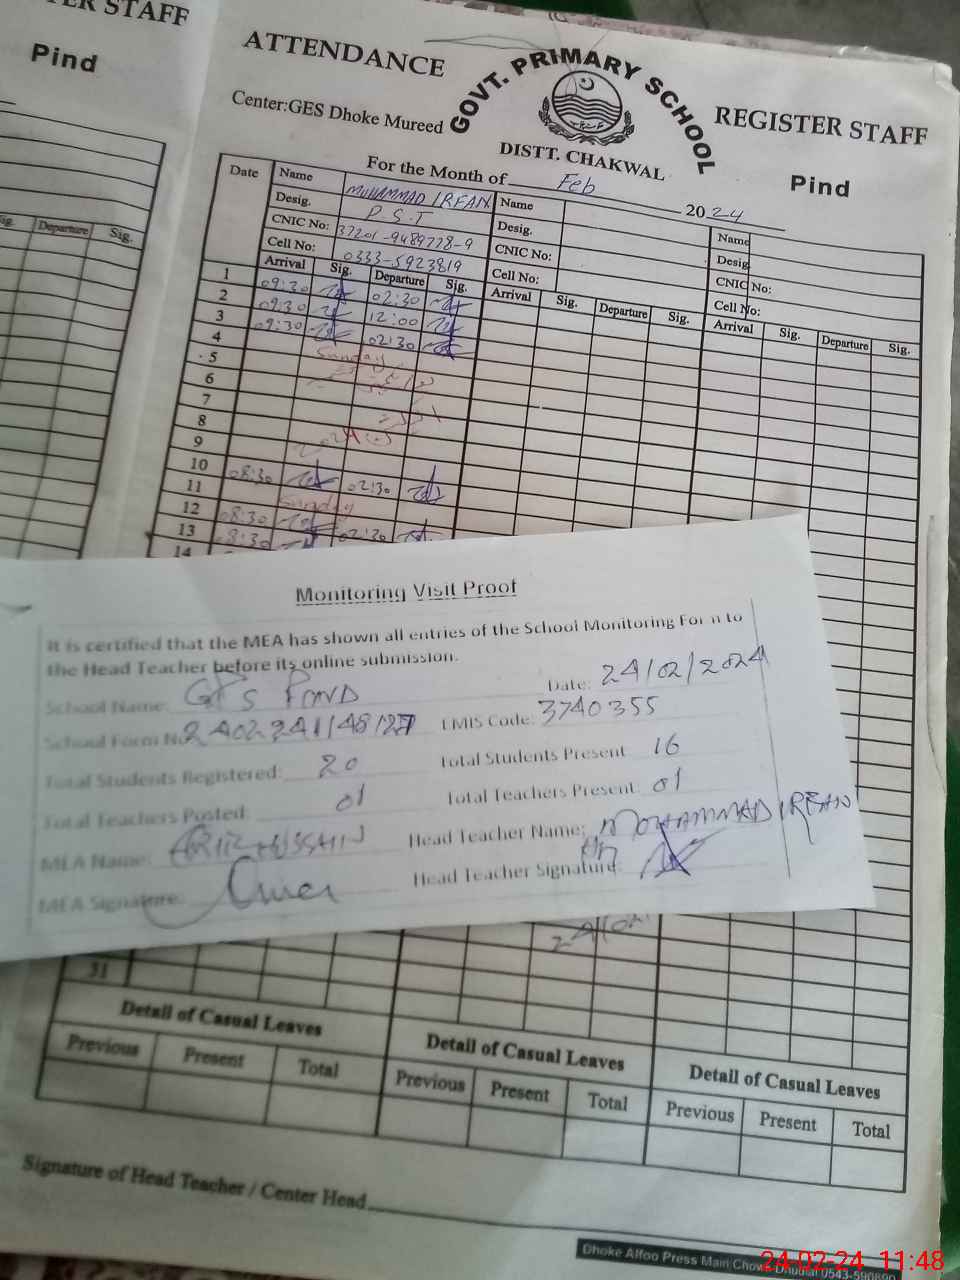 ER STAFF
Pind
ATTENDANCE
GOVT. PRIMARY SCHOOL
REGISTER STAFF
Center:GES Dhoke Mureed
DISTT. CHAKWAL
Pind
For the Month of Feb 2024
Date Name MUHAMMAD IRFAN Name Name
Desig. P.S.T Desig. Desig
CNIC No: 37201-9489778-9 CNIC No: CNIC No:
Cell No: 0333-5923819 Cell No: Cell No:
Arrival Sig. Departure Sig. Arrival Sig. Departure Sig. Arrival Sig. Departure Sig.
sig. Departure Sig.
1 09:30 02:30
2 09:30 12:00
3 09:30 02:30
4 Sunday
5
6
7
8
9
10 08:30 02:30
11 Sunday
12 08:30
13 08:30 02:30
14
Monitoring Visit Proof
It is certified that the MEA has shown all entries of the School Monitoring Form to
the Head Teacher before its online submission.
School Name: GPS PIND Date: 24/02/2024
School Form No EMIS Code: 3740355
Total Students Registered: 20 Total Students Present 16
Total Teachers Posted: 01 Total Teachers Present: 01
MEA Name: Head Teacher Name: MUHAMMAD IRFAN
MEA Signature: Head Teacher Signature:
31
Detail of Casual Leaves Detail of Casual Leaves Detail of Casual Leaves
Previous Present Total Previous Present Total Previous Present Total
Signature of Head Teacher / Center Head
Dhoke Alfoo Press Main Chowk Dhudial 0543-590890
24-02-24 11:48